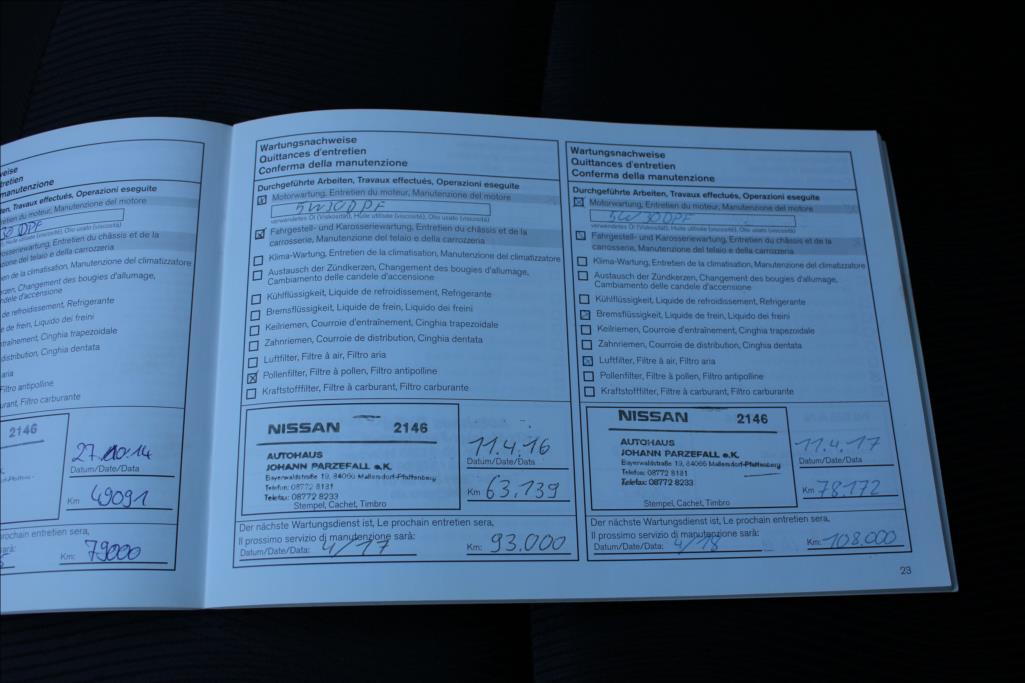 manutenzione
ten, Travaux effectués, Operazioni eseguite
entretien du moteur, Manutenzione del motore
30 DPF
Huile utilisée (viscosité), Olio usato (viscosità)
Karosseriewartung, Entretien du châssis et de la
zione del telaio e della carrozzeria
en de la climatisation, Manutenzione del climatizzatore
erzen, Changement des bougies d'allumage,
andele d'accensione
de refroidissement, Refrigerante
e de frein, Liquido dei freini
traînement, Cinghia trapezoidale
distribution, Cinghia dentata
aria
Filtro antipolline
urant, Filtro carburante
2146
27.10.14
Datum/Date/Data
Km 49091
prochain entretien sera,
sarà:
Km: 79000
Wartungsnachweise
Quittances d'entretien
Conferma della manutenzione
Durchgeführte Arbeiten, Travaux effectués, Operazioni eseguite
Motorwartung, Entretien du moteur, Manutenzione del motore
5W30DPF
verwendetes Öl (Viskosität), Huile utilisée (viscosité), Olio usato (viscosità)
Fahrgestell- und Karosseriewartung, Entretien du châssis et de la
carrosserie, Manutenzione del telaio e della carrozzeria
Klima-Wartung, Entretien de la climatisation, Manutenzione del climatizzatore
Austausch der Zündkerzen, Changement des bougies d'allumage,
Cambiamento delle candele d'accensione
Kühlflüssigkeit, Liquide de refroidissement, Refrigerante
Bremsflüssigkeit, Liquide de frein, Liquido dei freini
Keilriemen, Courroie d'entraînement, Cinghia trapezoidale
Zahnriemen, Courroie de distribution, Cinghia dentata
Luftfilter, Filtre à air, Filtro aria
Pollenfilter, Filtre à pollen, Filtro antipolline
Kraftstofffilter, Filtre à carburant, Filtro carburante
NISSAN 2146
AUTOHAUS
JOHANN PARZEFALL e.K.
Bayerwaldstraße 19, 84066 Mallersdorf-Pfaffenberg
Telefon: 08772 8131
Telefax: 08772 8233
Stempel, Cachet, Timbro
11.4.16
Datum/Date/Data
Km 63.139
Der nächste Wartungsdienst ist, Le prochain entretien sera,
Il prossimo servizio di manutenzione sarà:
Datum/Date/Data: 4/17 Km: 93.000
Wartungsnachweise
Quittances d'entretien
Conferma della manutenzione
Durchgeführte Arbeiten, Travaux effectués, Operazioni eseguite
Motorwartung, Entretien du moteur, Manutenzione del motore
5W30DPF
verwendetes Öl (Viskosität), Huile utilisée (viscosité), Olio usato (viscosità)
Fahrgestell- und Karosseriewartung, Entretien du châssis et de la
carrosserie, Manutenzione del telaio e della carrozzeria
Klima-Wartung, Entretien de la climatisation, Manutenzione del climatizzatore
Austausch der Zündkerzen, Changement des bougies d'allumage,
Cambiamento delle candele d'accensione
Kühlflüssigkeit, Liquide de refroidissement, Refrigerante
Bremsflüssigkeit, Liquide de frein, Liquido dei freini
Keilriemen, Courroie d'entraînement, Cinghia trapezoidale
Zahnriemen, Courroie de distribution, Cinghia dentata
Luftfilter, Filtre à air, Filtro aria
Pollenfilter, Filtre à pollen, Filtro antipolline
Kraftstofffilter, Filtre à carburant, Filtro carburante
NISSAN 2146
AUTOHAUS
JOHANN PARZEFALL e.K.
Bayerwaldstraße 19, 84066 Mallersdorf-Pfaffenberg
Telefon: 08772 8131
Telefax: 08772 8233
Stempel, Cachet, Timbro
11.4.17
Datum/Date/Data
Km 78.172
Der nächste Wartungsdienst ist, Le prochain entretien sera,
Il prossimo servizio di manutenzione sarà:
Datum/Date/Data: 4/18 Km: 108.000
23